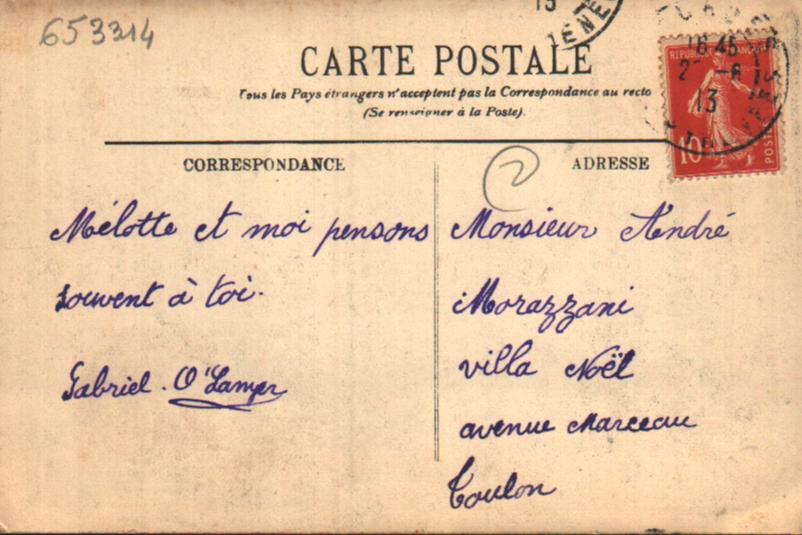 653314
CARTE POSTALE
Tous les Pays étrangers n'acceptent pas la Correspondance au recto
(Se renseigner à la Poste).
CORRESPONDANCE
ADRESSE
2
Mélotte et moi pensons
souvent à toi.
Gabriel.
Monsieur André
Morazzani
villa Noël
avenue Marceau
Toulon
16 45
13
10
POSTES
13